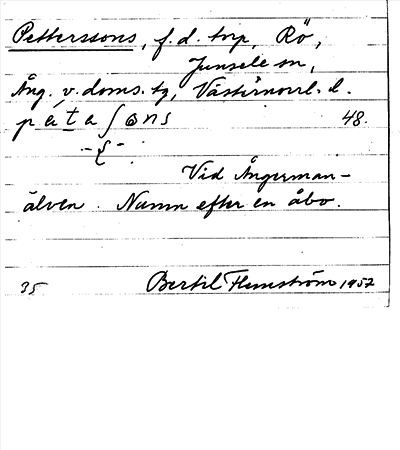 Petterssons, f.d. torp, Rö,
Junsele sn,
Ång. v. doms. tg, Västernorrl. l.
48.
Vid Ångerman-
älven. Namn efter en åbo.
35
Bertil Flemström 1957